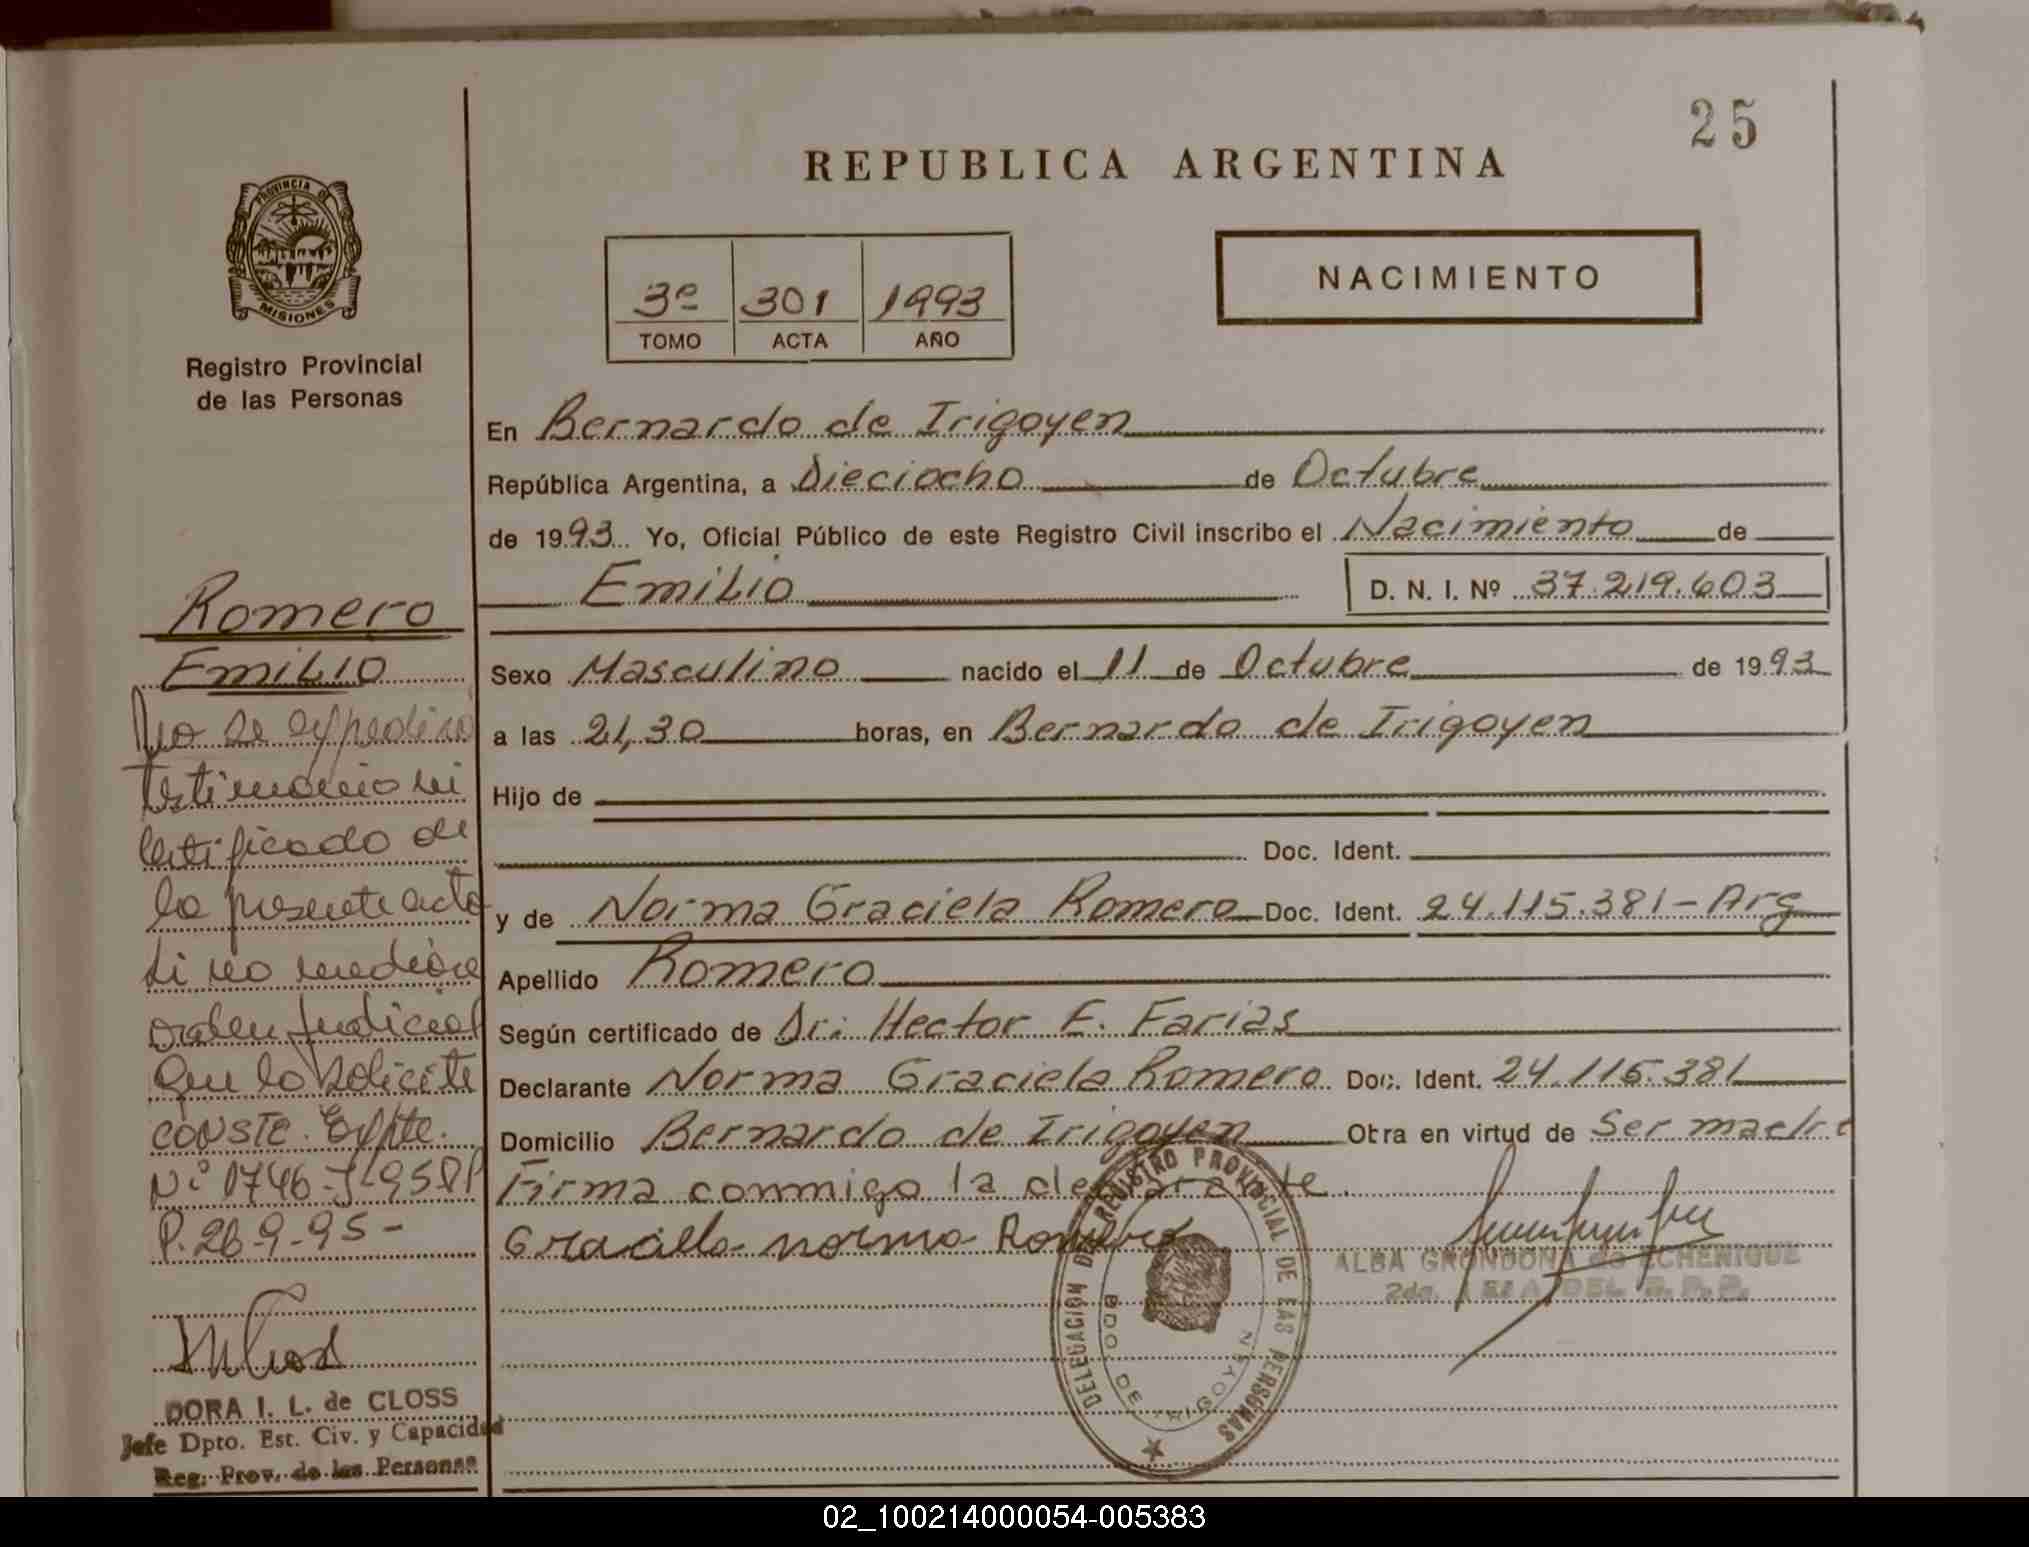 25
REPUBLICA ARGENTINA
PROVINCIA DE
MISIONES
3º 301 1993
TOMO ACTA AÑO
NACIMIENTO
Registro Provincial
de las Personas
En Bernardo de Irigoyen
República Argentina, a Dieciocho de Octubre
de 1993 Yo, Oficial Público de este Registro Civil inscribo el Nacimiento de
Emilio D. N. I. Nº 37.219.603
Sexo Masculino nacido el 11 de Octubre de 1993
a las 21,30 horas, en Bernardo de Irigoyen
Hijo de
Doc. Ident.
y de Norma Graciela Romero Doc. Ident. 24.115.381 - Arg
Apellido Romero
Según certificado de Dr: Hector E. Farias
Declarante Norma Graciela Romero Doc. Ident. 24.115.381
Domicilio Bernardo de Irigoyen Otra en virtud de Ser madre
Firma conmigo la declarante.
Norma Romero
ALBA GRONDONA de ECHENIQUE
DELEGACION DEL REGISTRO PROVINCIAL DE LAS PERSONAS
BDO. DE IRIGOYEN
Romero
Emilio
No se expedira
testimonio ni
certificado de
la presente acta
si no mediare
orden Judicial
que lo solicite
CONSTE. Expte.
P. 26-9-95-
DORA I. L. de CLOSS
Jefe Dpto. Est. Civ. y Capacidad
Reg. Prov. de las Personas
02_100214000054-005383